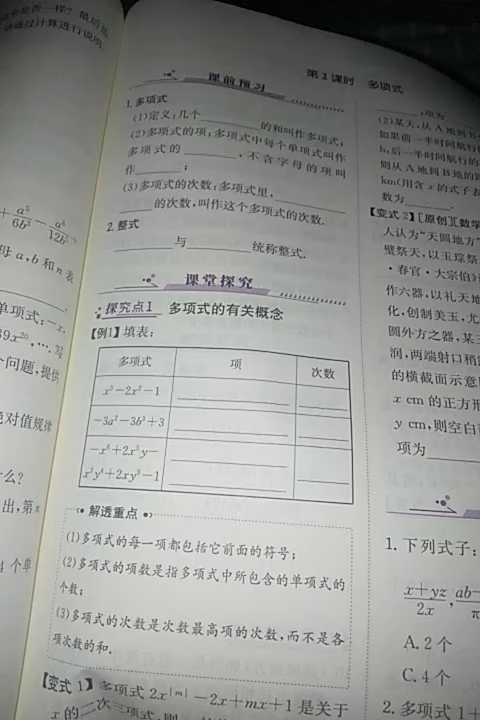 第2课时 多项式
课前预习
1.多项式
(1)定义:几个________的和叫作多项式;
(2)多项式的项:多项式中每个单项式叫作
多项式的________,不含字母的项叫
作________;
(3)多项式的次数:多项式里,________
________的次数,叫作这个多项式的次数.
2.整式
________与________统称整式.
课堂探究
探究点1 多项式的有关概念
【例1】填表:
多项式 项 次数
-3a²-3b³+3
解透重点
(1)多项式的每一项都包括它前面的符号;
(2)多项式的项数是指多项式中所包含的单项式的
个数;
(3)多项式的次数是次数最高项的次数,而不是各
项次数的和.
【变式1】多项式 2x|m|-2x+mx+1 是关于
x的二次三项式,则
(2)某天,从A地到B
如果前一半时间航行的
h,后一半时间航行的
则从A地到B地的距
km(用含x的式子表
数为________.
【变式2】[原创][数学
人认为“天圆地方”
璧祭天,以玉琮祭
·春官·大宗伯》
作六器,以礼天地
化,创制美玉,尤
圆外方之器,某玉
润,两端射口稍
的横截面示意
x cm的正方形
y cm,则空白
项为________
1.下列式子:
x+yz/2x, ab-/π
A.2个
C.4个
2.多项式1+